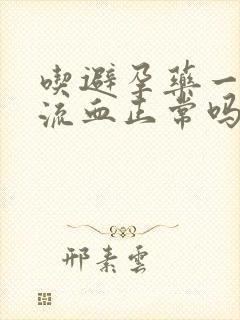 喫避孕藥一
流血正常吗
邢素雲